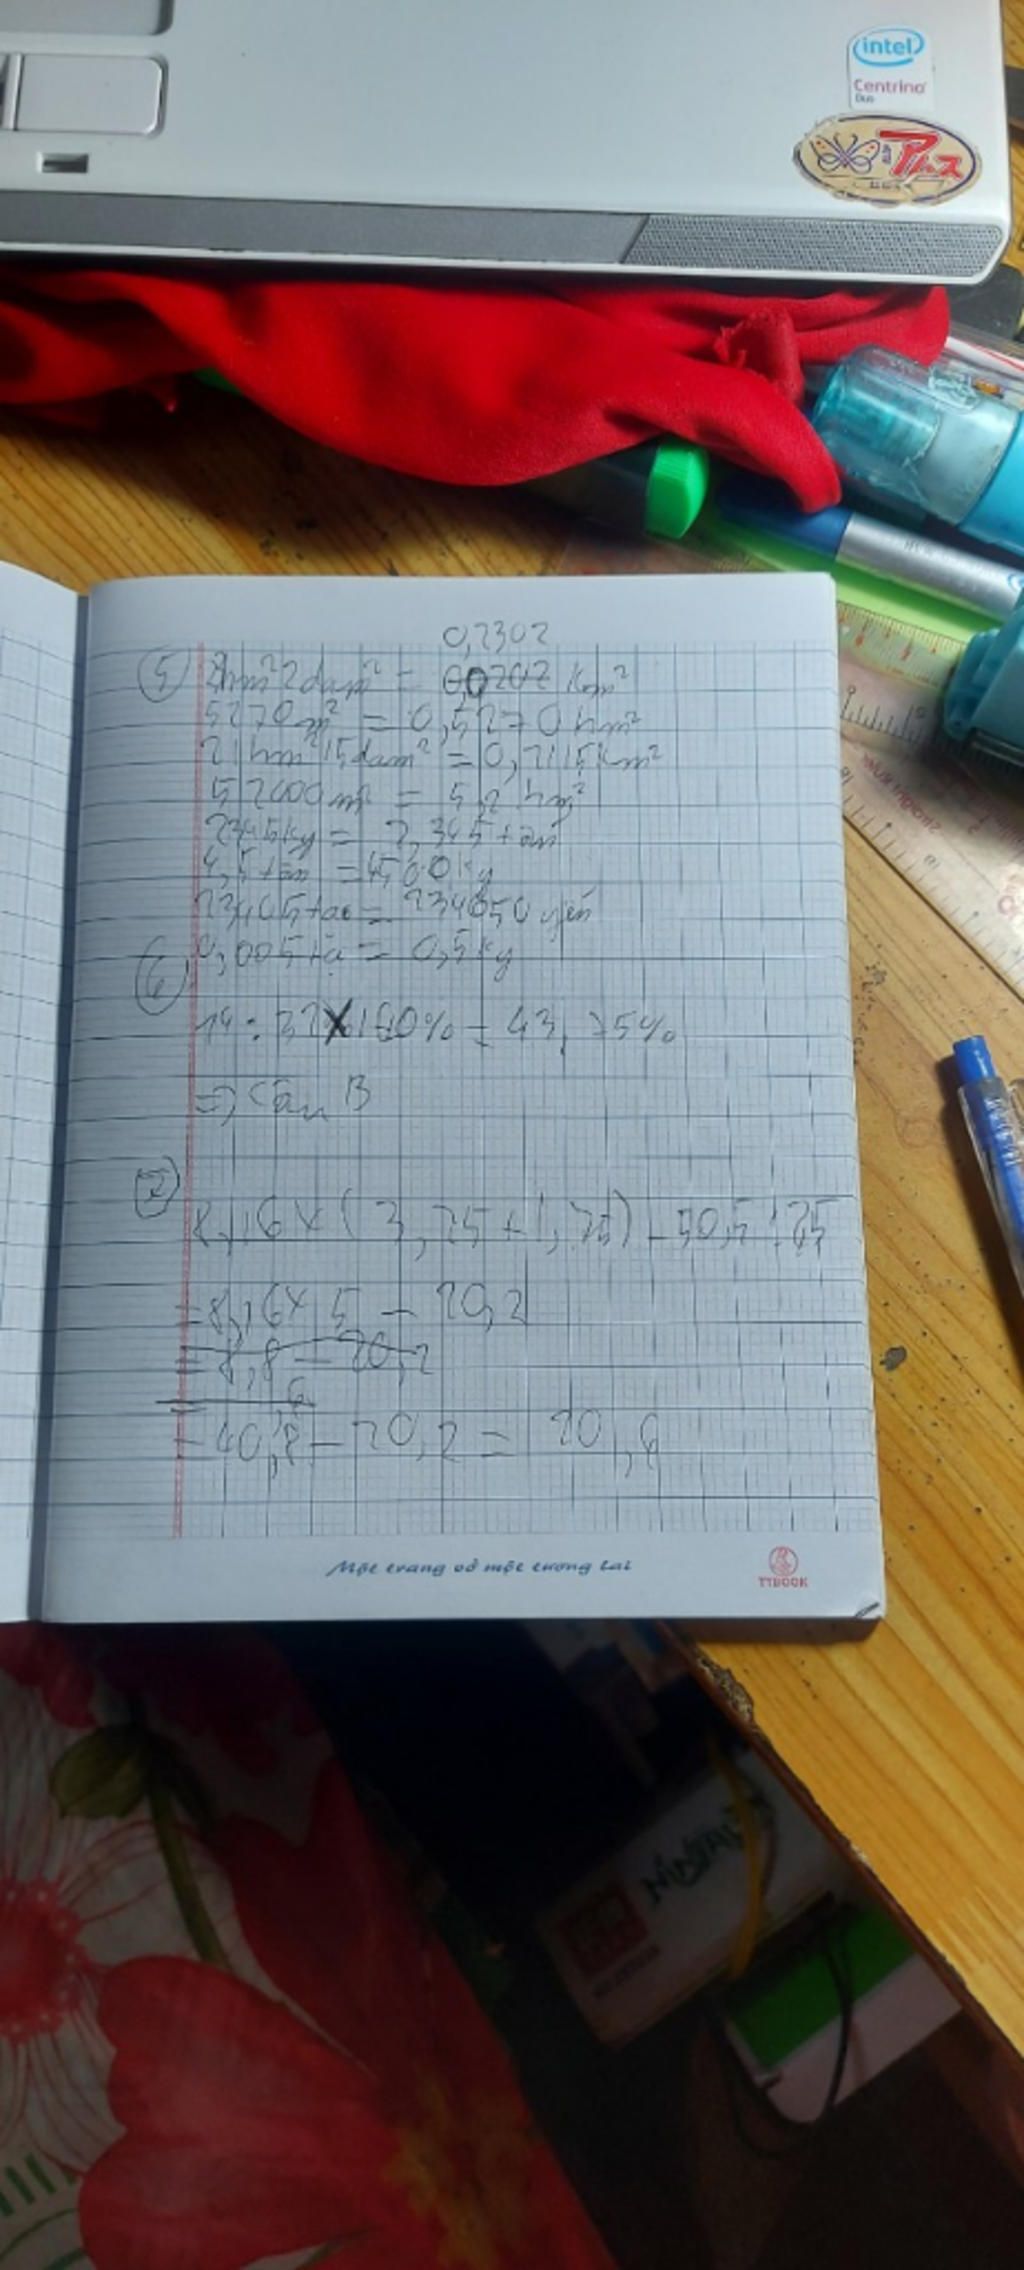 intel
Centrino
Duo
アムス
0,2302
5 2hm² 2dam² = 0,0202 Km²
5270m² = 0,5270 hm²
21hm² 15dam² = 0,2115Km²
52000m² = 5,2 hm²
2345kg = 2,345 tấn
4,5 tấn = 4500Kg
= 234050 yến
6 0,005 tạ = 0,5kg
14 : 32 x 100% = 43,75%
=> Câu B
7
8,16 x (3,25 + 1,75) - 50,5 : 2,5
= 8,16 x 5 - 20,2
= 8,8 - 20,2
= 40,8 - 20,2 = 20,6
Một trang vở một tương lai
TTBOOK